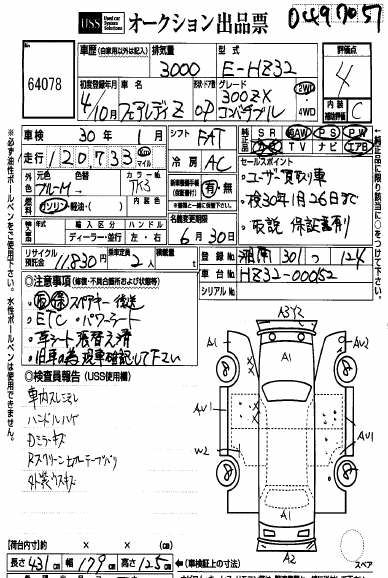 USS Used car System Solutions オークション出品票
64078
車歴(自家用以外は記入) 排気量 型式 評価点
3000 E-HZ32 4
初度登録年月 車名 形状・ドア数 グレード
4/10月 フェアレディZ OP 300ZX コンバーチブル 2WD・4WD
内装補助評価 C
車検 30年 1月 シフト FAT SR AW PS PW
TV ナビ エアB
走行 120,733 km マイル 冷房 AC セールスポイント
外色 元色 色替 カラーNo.
ブルーM→ TK3
・ユーザー買取り車
・検30年1月26日まで
・取説 保証書有り
燃料 ガソリン・軽油・( ) 有・無
輸入区分 ハンドル 名義変更期限
ディーラー・並行 左・右 6月30日
リサイクル預託金 11,830円 乗車定員 2人 積載量 t
登録No. 湘南 301 つ 124
車台No. HZ32-000152
シリアルNo.
◎注意事項(修復・不具合箇所および状態等)
・取 保 スペアキー 後送
・ETC ・パワーシート
・革シート張替え済
・旧車の為現車確認して下さい
◎検査員報告(USS使用欄)
車内スレシミ
ハンドルハゲ
Dミラーキズ
外装ウスキズ
A3Y2
A1 A1 A2
8 8
AU1
W2 AU1
8 8
A1
A2
スペア
【荷台内寸】 × ×
長さ 431cm 幅 179cm 高さ 125cm ←(車検証上の寸法)
※必ず油性ボールペンをご使用下さい。水性ボールペンは使用できません。